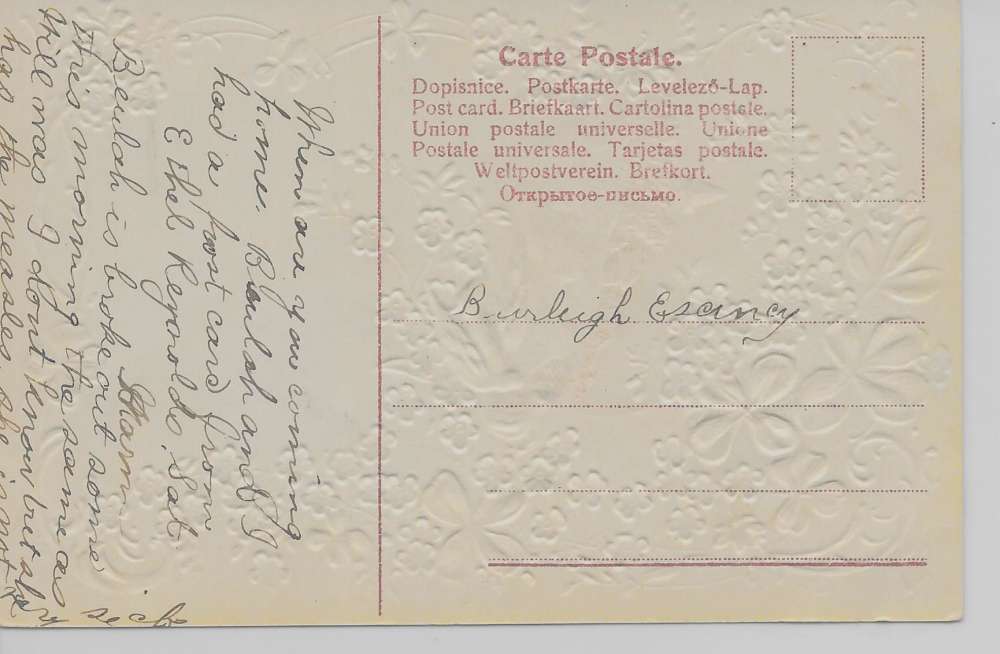 Carte Postale.
Dopisnice. Postkarte. Levelező-Lap.
Post card. Briefkaart. Cartolina postale.
Union postale universelle. Unione
Postale universale. Tarjetas postale.
Weltpostverein. Brefkort.
Открытое-письмо.
Burleigh Esancy
When are you coming
home. Beulah and I
had a post card from
Ethel Reynolds, Sat.
Marm
Beulah is broke out some
this morning the same as
Will was I dont know but she
has the measles. she is not
sick